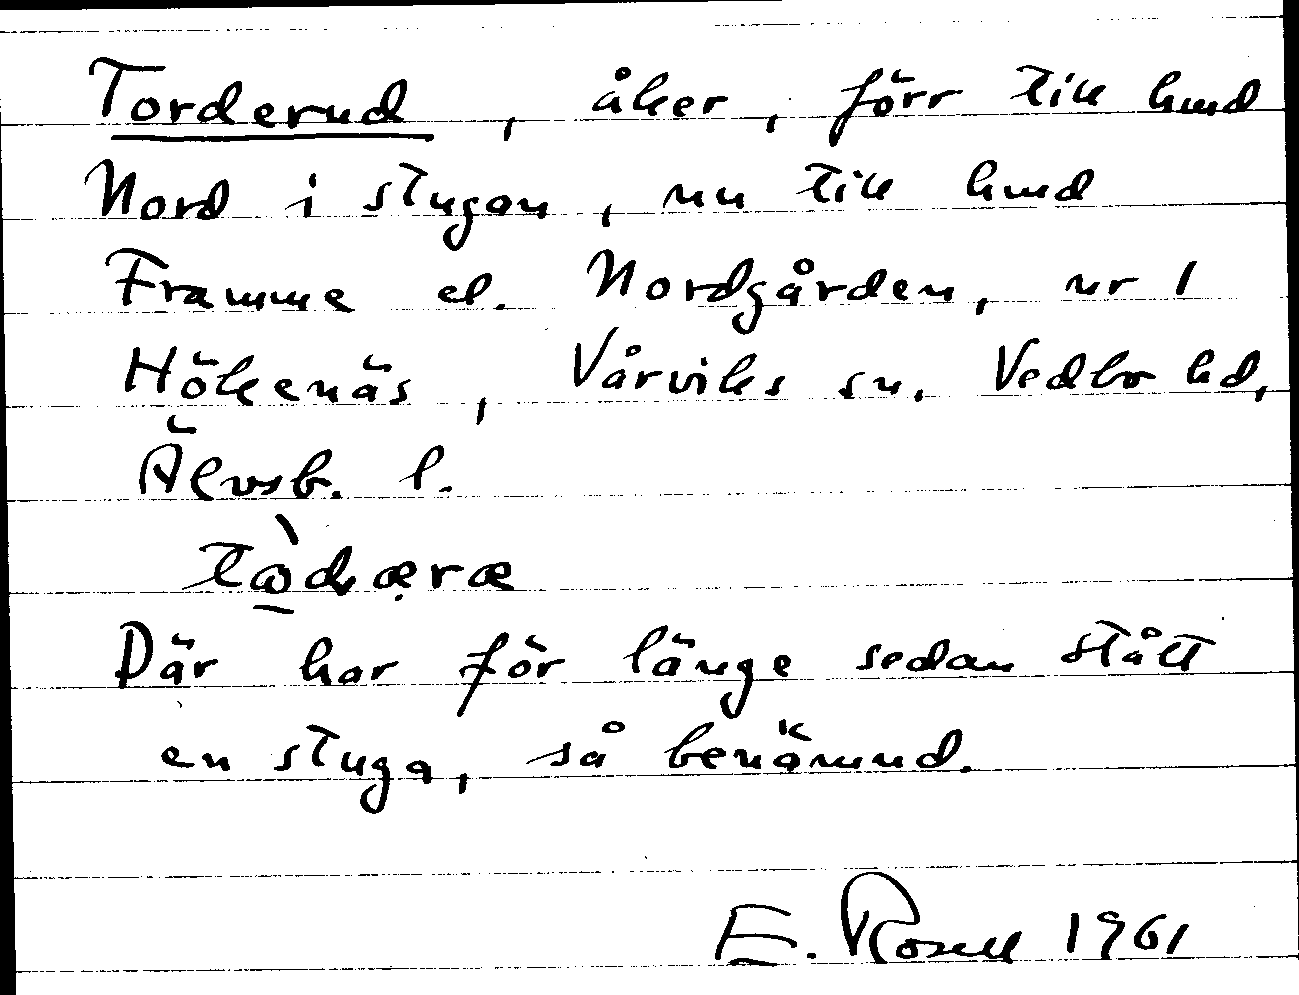 Torderud, åker, förr till hmd
Nord i stugan, nu till hmd
Framme el. Nordgården, nr 1
Hökenäs, Vårviks sn. Vedbo hd,
Älvsb. l.
Där har för länge sedan stått
en stuga, så benämnd.
E. Rosell 1961